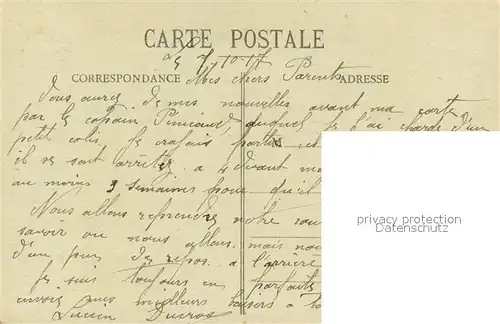 CARTE POSTALE
Le 7-10-17
CORRESPONDANCE Mes chers Parents ADRESSE
Vous aurez de mes nouvelles avant ma carte
par le copain duquel je l'ai chargé d'un
petit colis. Je
il se sont arrêtés a 4 devant
au moins 3 semaines pour qu'il
Nous allons reprendre notre
savoir où nous allons, mais nou
d'un jour de repos a l'arrière
Je suis toujours en parfaite
envoie mes meilleurs baisers a to
Lucien Ducros
privacy protection
Datenschutz